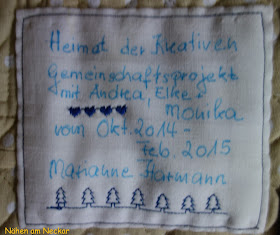 Heimat der Kreativen
Gemeinschaftsprojekt
mit Andrea, Elke &
Monika
vom Okt. 2014 -
Feb. 2015
Marianne Harmann
Nähen am Neckar